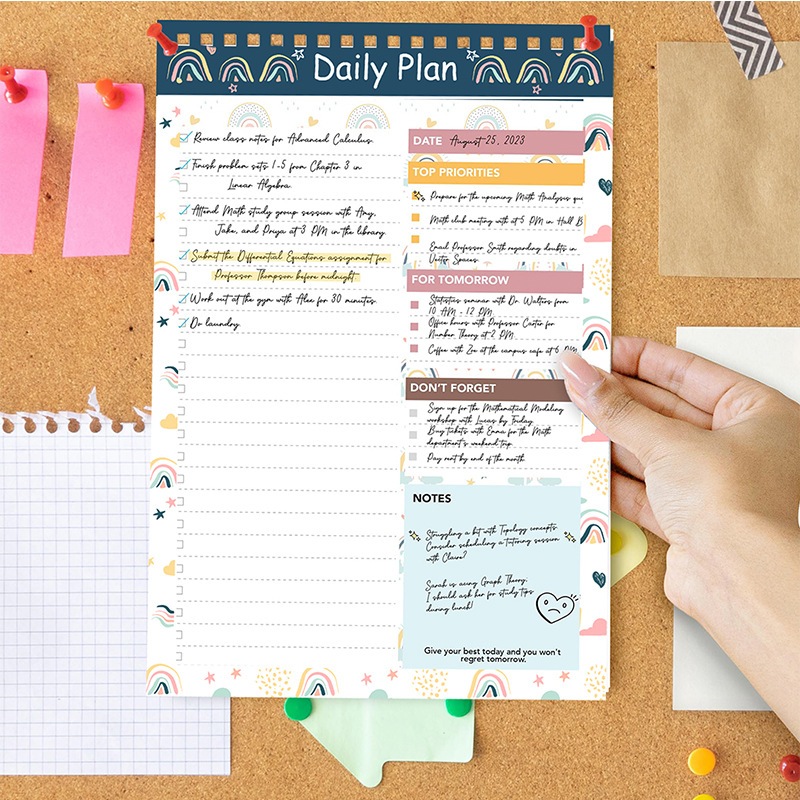 Daily Plan
Review class notes for Advanced Calculus.
Finish problem sets 1-5 from Chapter 3 in
Linear Algebra.
Attend Math study group session with Amy,
Jake, and Priya at 3 PM in the library.
Submit the Differential Equations assignment for
Professor Thompson before midnight.
Work out at the gym with Alex for 30 minutes.
Do laundry.
DATE August 25, 2023
TOP PRIORITIES
Prepare for the upcoming Math Analysis
Math club meeting with at 5 PM in Hall B
Email Professor Smith regarding doubts in
Vector Spaces.
FOR TOMORROW
Statistics seminar with Dr. Walters from
10 AM - 12 PM.
Office hours with Professor Carter for
Number Theory at 2 PM.
Coffee with Zoe at the campus cafe at 6 PM
DON'T FORGET
Sign up for the Mathematical Modeling
workshop with Lucas by Friday.
Buy tickets with Emma for the Math
department's weekend trip.
Pay rent by end of the month.
NOTES
Struggling a bit with Topology concepts.
Consider scheduling a tutoring session
with Claire?
Sarah is acing Graph Theory.
I should ask her for study tips
during lunch!
Give your best today and you won't
regret tomorrow.